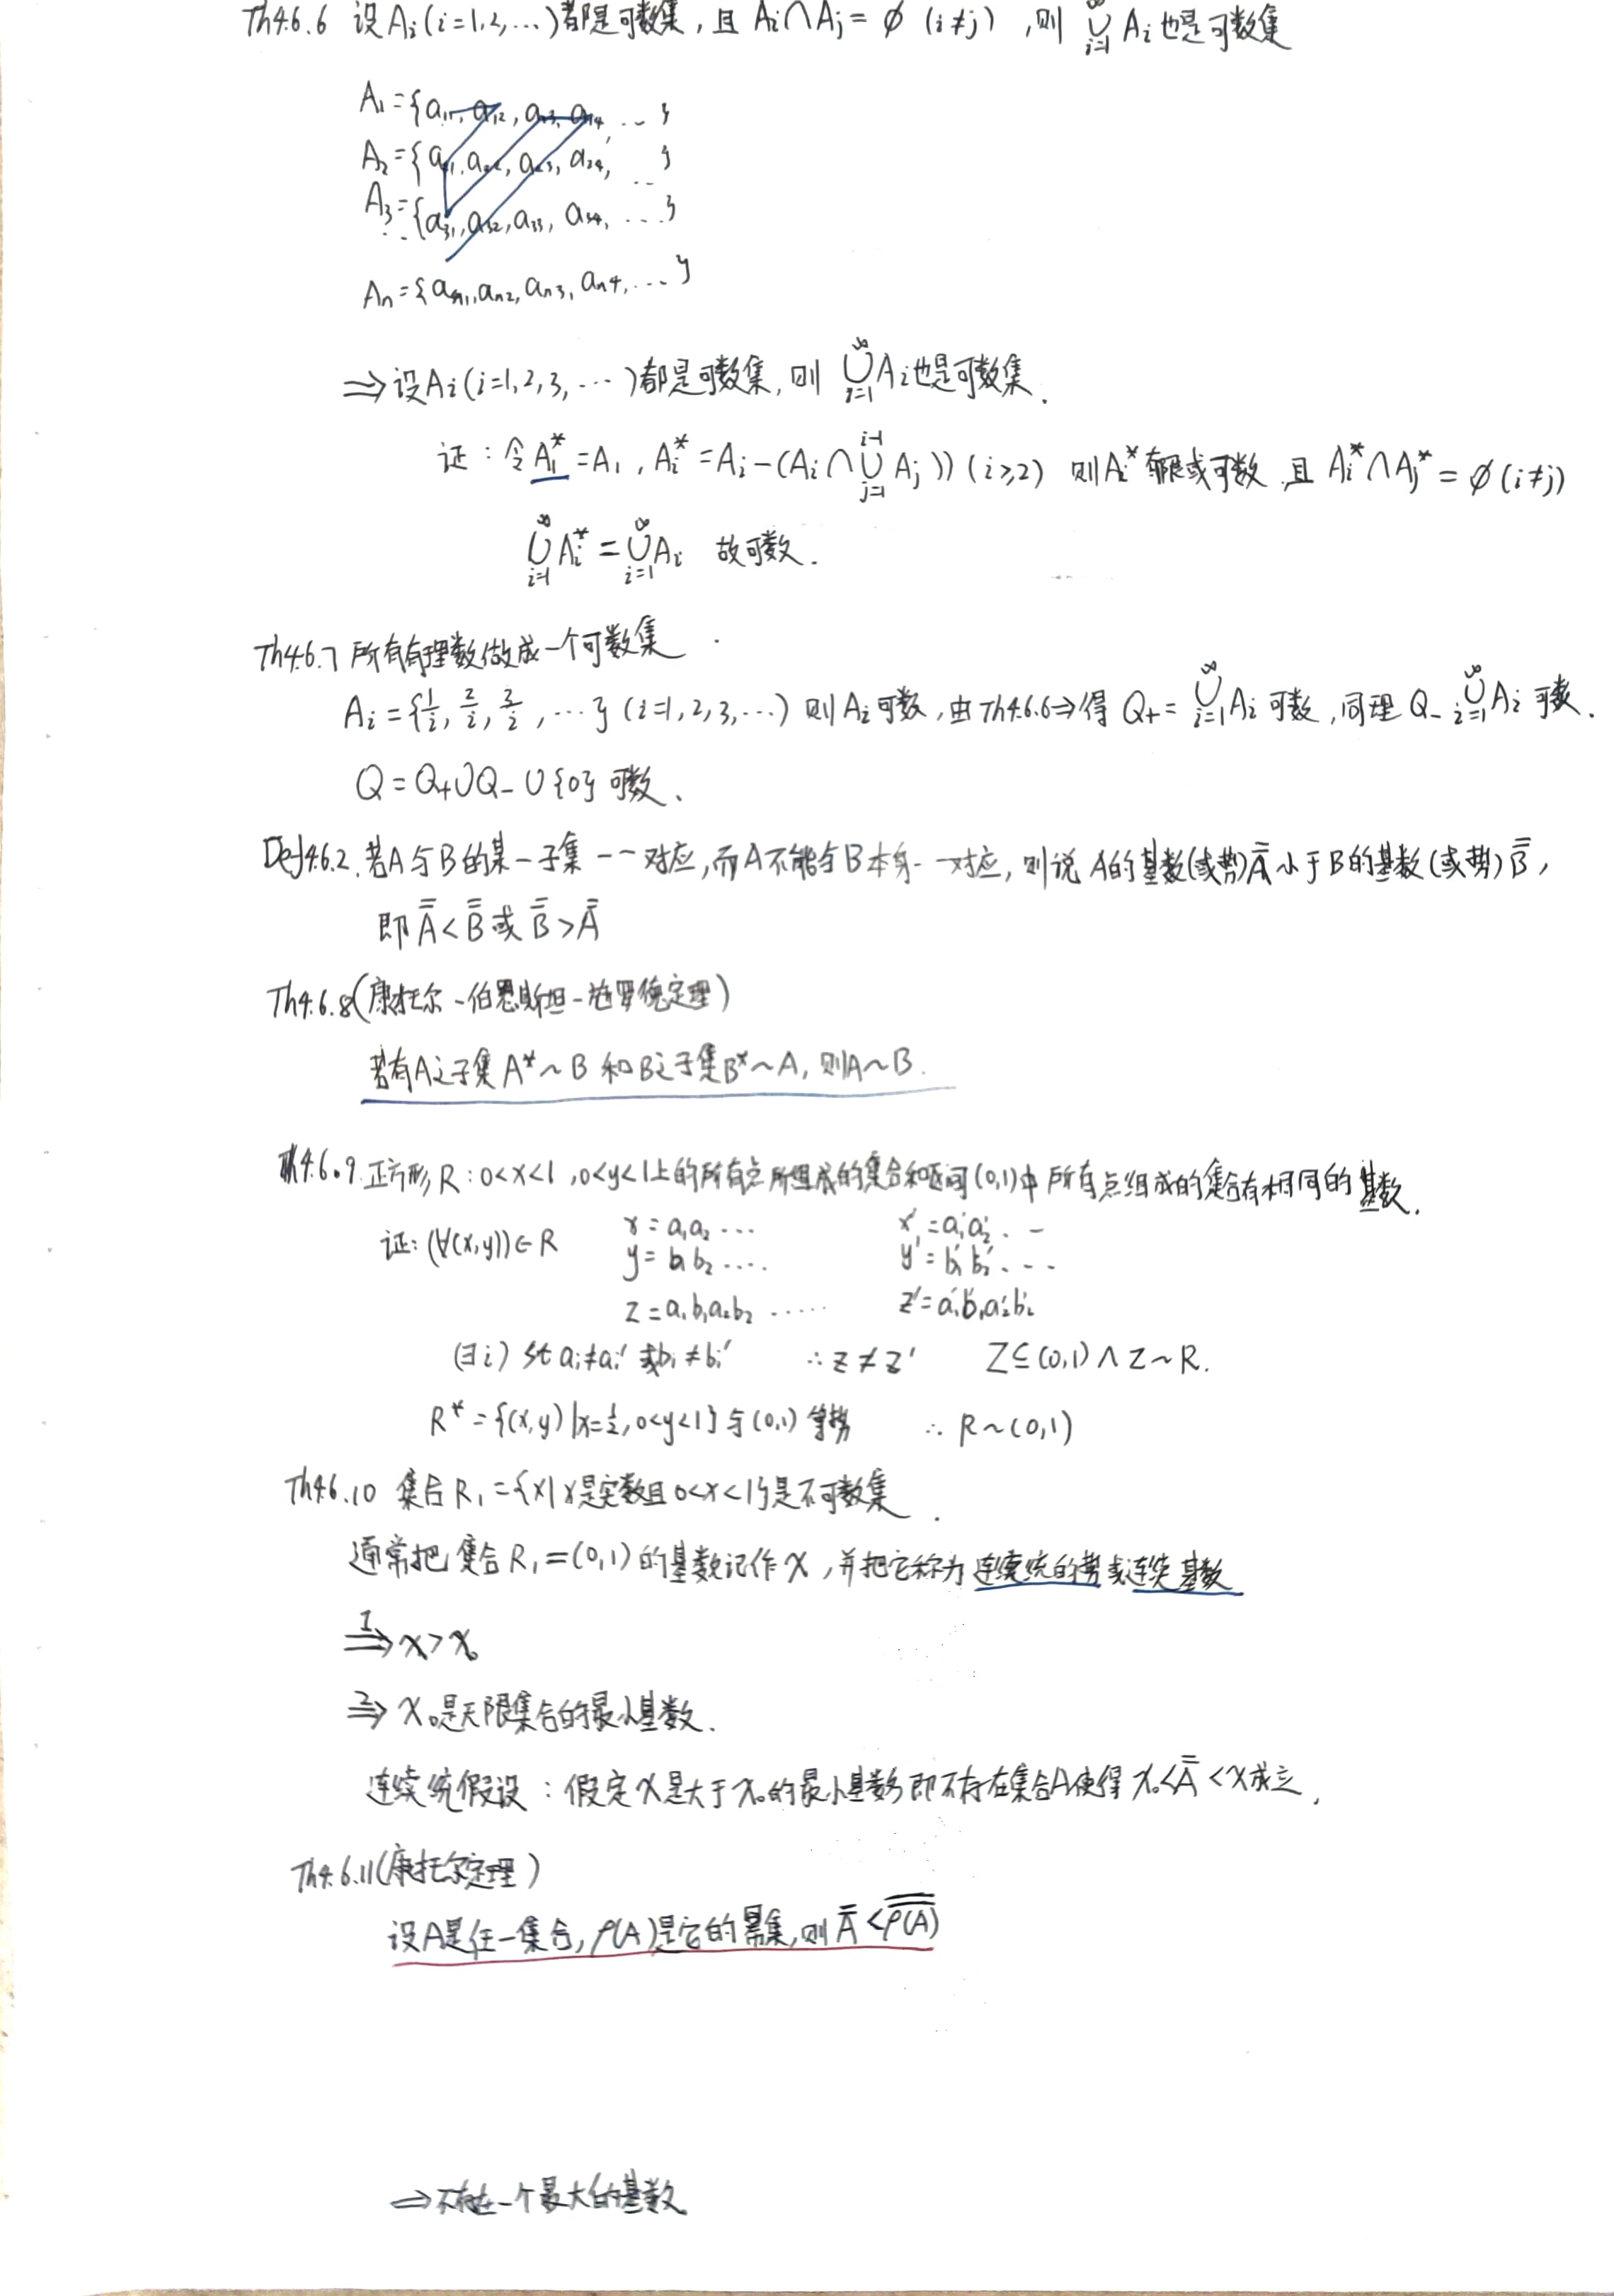 Th4.6.6 设Ai(i=1,2,…)都是可数集,且 Ai∩Aj=∅ (i≠j),则 ∞∪i=1 Ai也是可数集
A1={a11,a12,a13,a14,…}
A2={a21,a22,a23,a24,…}
A3={a31,a32,a33,a34,…}
⋮
An={an1,an2,an3,an4,…}
⇒设Ai(i=1,2,3,…)都是可数集,则 ∞∪i=1 Ai也是可数集.
证:令A1*=A1,Ai*=Ai-(Ai∩ i-1∪j=1 Aj))(i≥2) 则Ai*有限或可数,且 Ai*∩Aj*=∅(i≠j)
∞∪i=1 Ai*=∞∪i=1 Ai 故可数.
Th4.6.7 所有有理数做成一个可数集
Ai={1/i,2/i,3/i,…}(i=1,2,3,…) 则Ai可数,由Th4.6.6⇒得 Q+=∞∪i=1 Ai可数,同理 Q- ∞∪i=1 Ai 可数.
Q=Q+∪Q-∪{0}可数、
Def4.6.2.若A与B的某一子集一一对应,而A不能与B本身一一对应,则说A的基数(或势)A̿小于B的基数(或势)B̿,
即 A̿<B̿ 或 B̿>A̿
Th4.6.8(康托尔-伯恩斯坦-施罗德定理)
若有A之子集A*~B 和B之子集B*~A,则A~B.
Th4.6.9.正方形R:0<x<1,0<y<1上的所有点所组成的集合和区间(0,1)中所有点组成的集合有相同的基数.
证:(∀(x,y))∈R x=a1a2… x'=a1'a2'…
y=b1b2…. y'=b1'b2'…
z=a1b1a2b2…… z'=a1'b1'a2'b2'
(∃i) st ai≠ai' 或bi≠bi' ∴z≠z' Z⊆(0,1)∧Z~R.
R*={(x,y)|x=1/2,0<y<1}与(0,1)等势 ∴R~(0,1)
Th4.6.10 集合R1={x|x是实数且0<x<1}是不可数集.
通常把集合R1=(0,1)的基数记作ℵ,并把它称为连续统的势或连续基数
1⇒ℵ>ℵ0
2⇒ℵ0是无限集合的最小基数.
连续统假设:假定ℵ是大于ℵ0的最小基数即不存在集合A使得ℵ0<A̿<ℵ成立.
Th4.6.11(康托尔定理)
设A是任一集合,ρ(A)是它的幂集,则 A̿<ρ(A)̿
⇒不存在一个最大的基数.